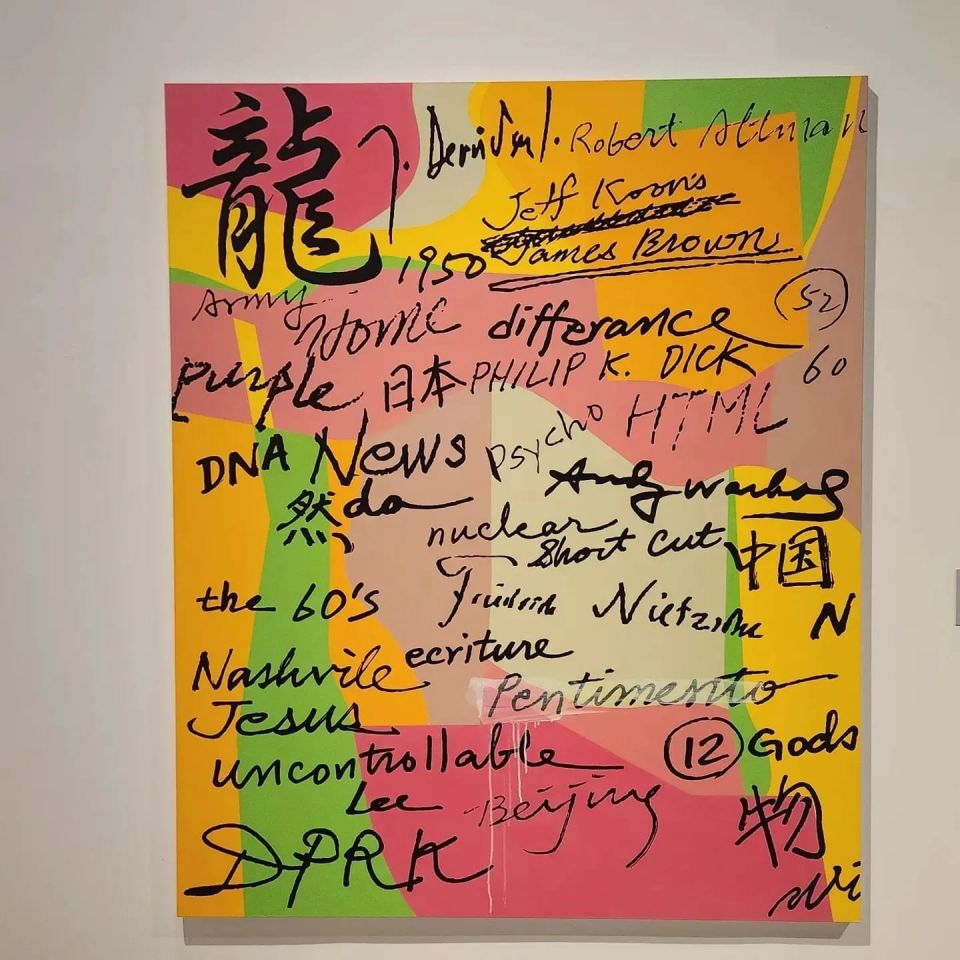 龍
J. Derrida
Robert Altman
Jeff Koons
James Brown
1950
Army
Home
differance
52
purple
日本
PHILIP K. DICK
60
psycho
HTML
DNA
News
Andy Warhol
然
da
nuclear
Short Cut
中国
the 60's
Friedrich Nietzsche
N
ecriture
Nashvile
Pentimento
Jesus
12 Gods
uncontrollable
Lee
Beijing
物
DPRK